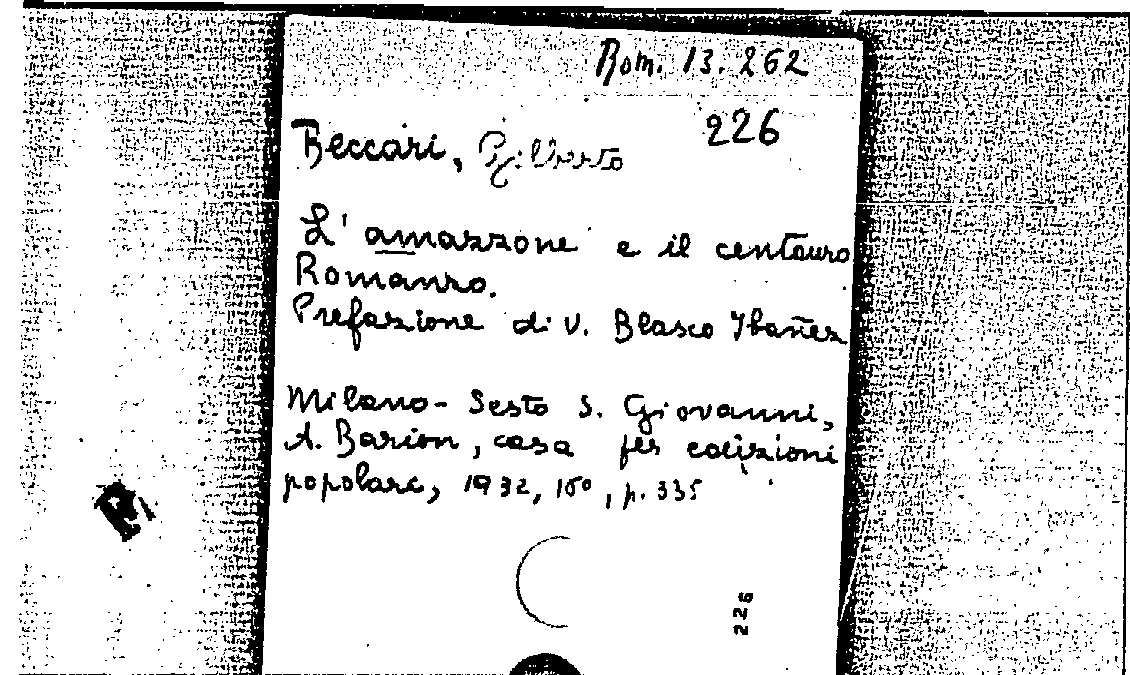 Rom. 13.262
226
Beccari, Gilberto
L'amazzone e il centauro
Romanzo.
Prefazione di V. Blasco Ybañez
Milano - Sesto S. Giovanni,
A. Barion, casa per edizioni
popolare, 1932, 16°, p. 335
226